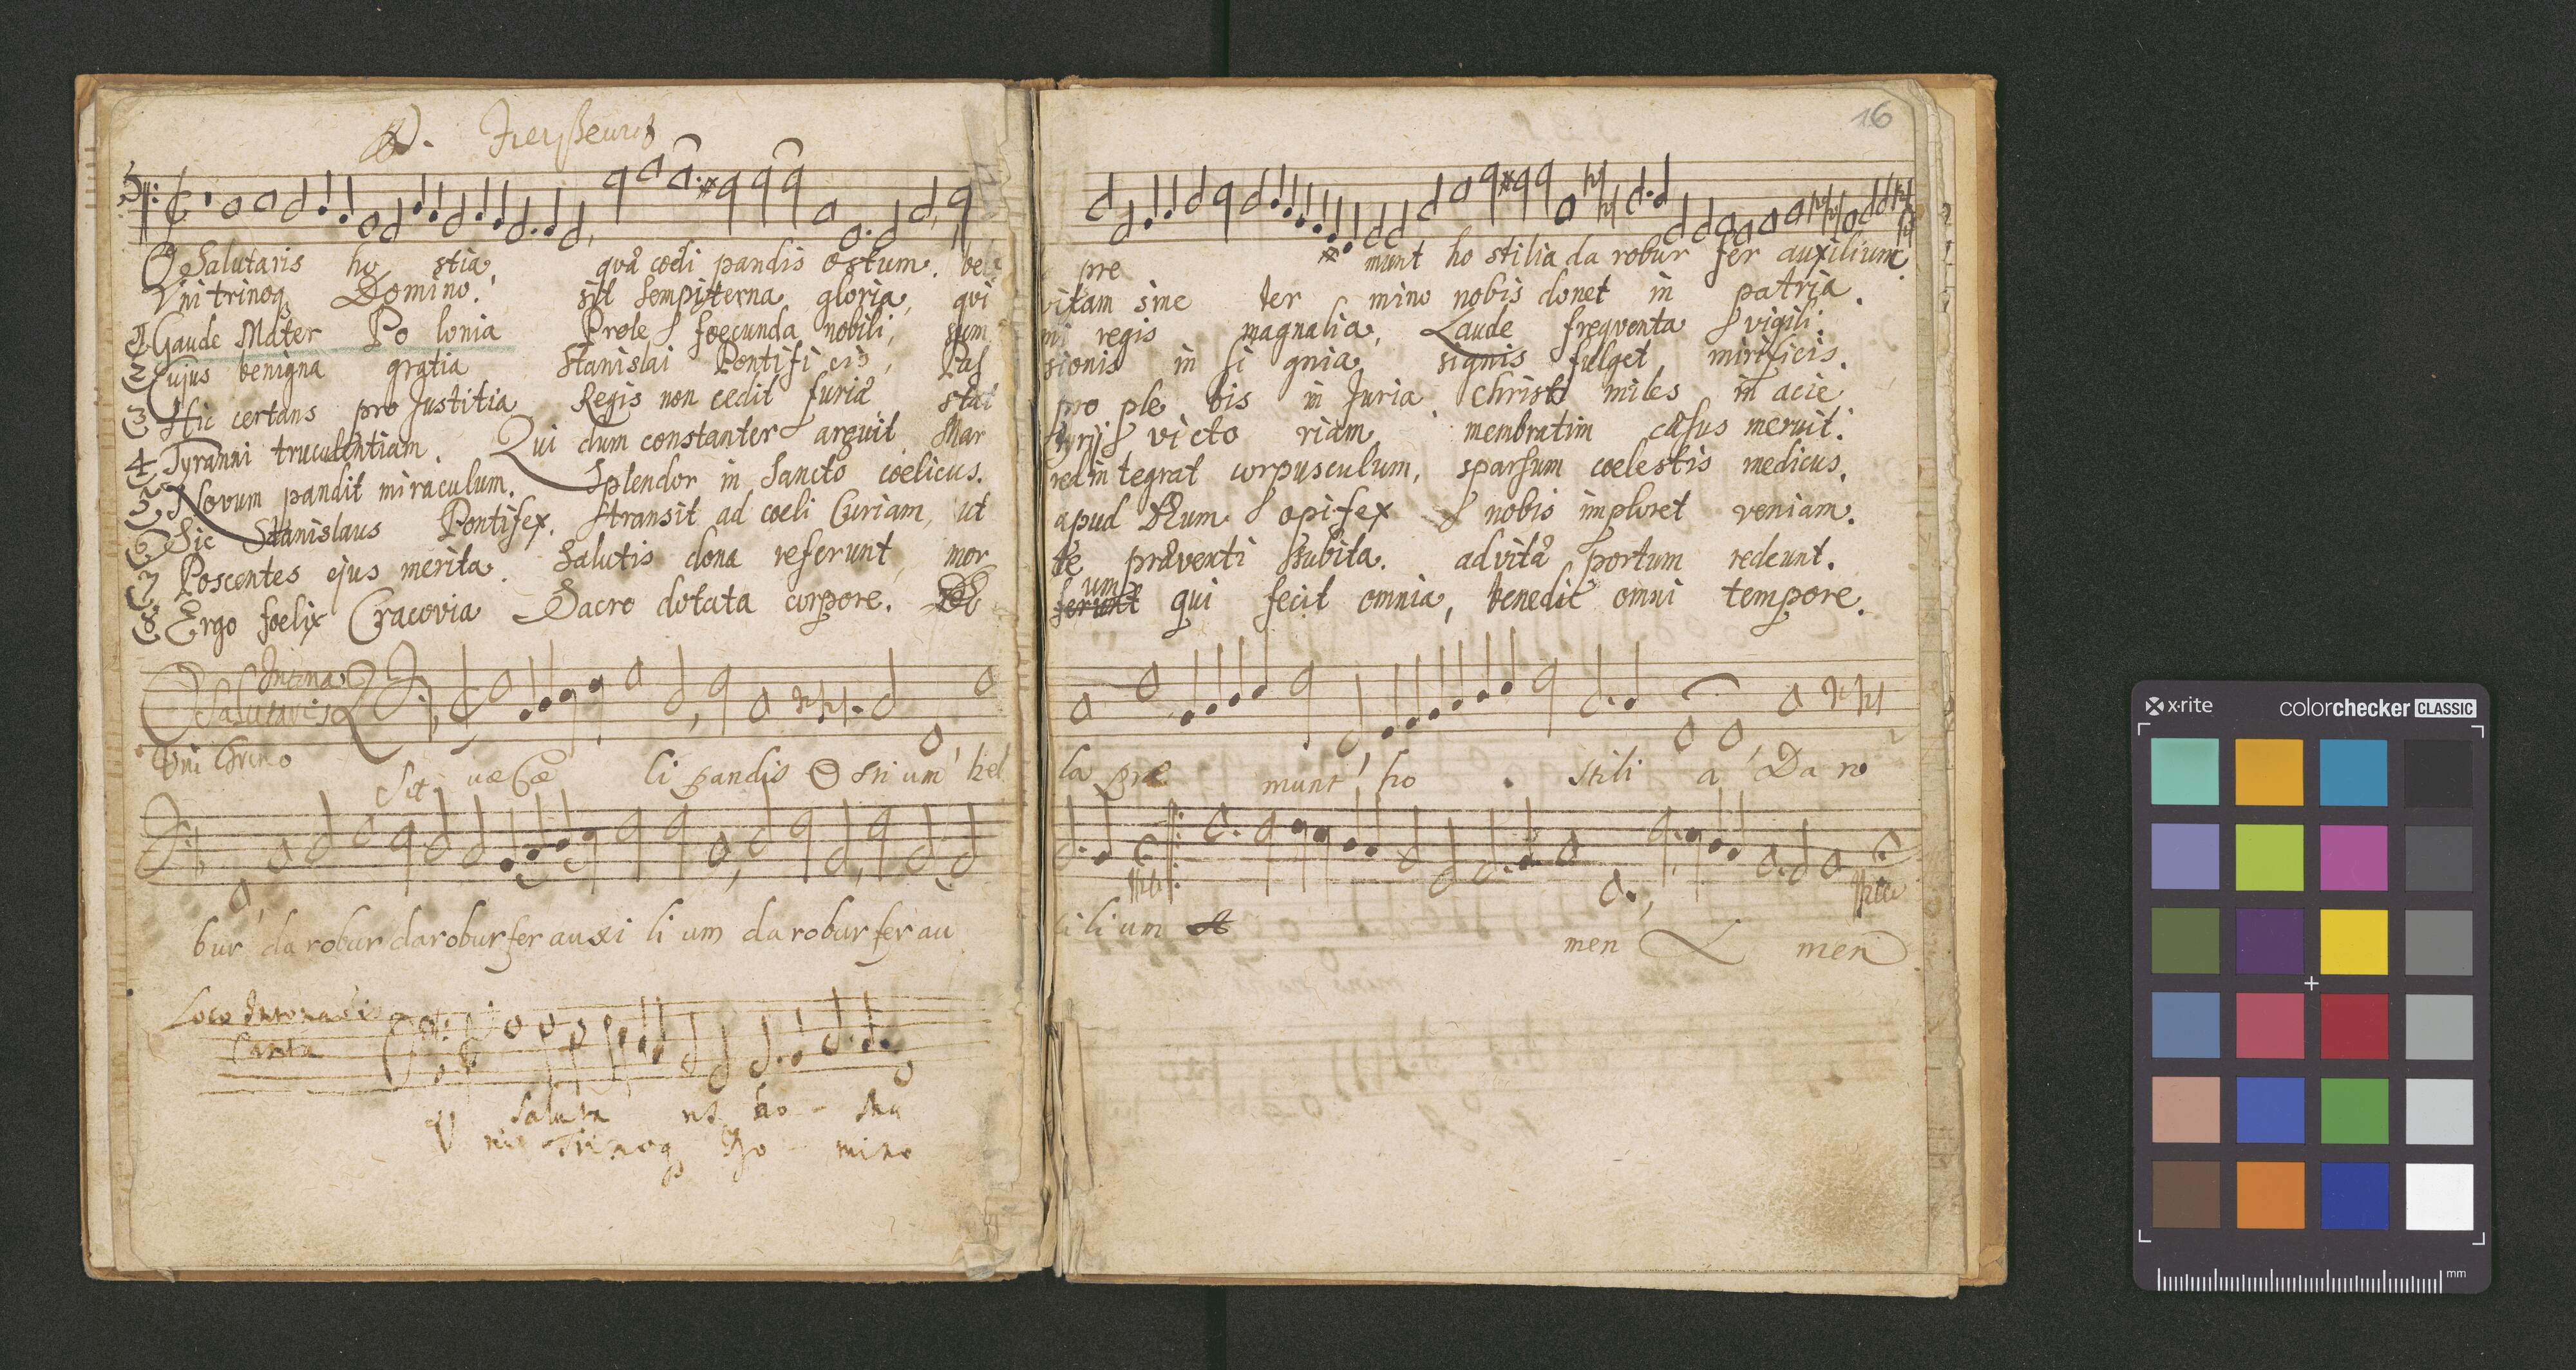 16
O Salutaris ho stia, quæ cœli pandis ostium. bel
pre munt ho stilia da robur fer auxilium.
Vni trinoq Domino. sit sempiterna gloria, qvi
vitam sine ter mino nobis donet in patria.
1 Gaude Mater Po lonia Prole fœcunda nobili, sum
mi regis magnalia, Laude freqventa vigili.
2 Cujus benigna gratia Stanislai Pontifi cis, Pas
sionis in si gnia signis fulget mirificis.
3 Hic certans pro Justitia Regis non cedit furiæ stat
pro ple bis in Juria Christi miles in acie
4 Tyranni truculentiam. Qui dum constanter arguit Mar
tyrij victo riam membratim cæsus meruit.
5 Novum pandit miraculum. Splendor in Sancto cœlicus.
redintegrat corpusculum, sparsum cœlestis medicus.
6 Sic Stanislaus Pontifex. transit ad cœli Curiam, ut
apud DEum opifex nobis imploret veniam.
7 Poscentes ejus merita. Salutis dona referunt, mor
te præventi subita. ad vitæ portum redeunt.
8 Ergo fœlix Cracovia Sacro dotata corpore. De
um qui fecit omnia, benedic omni tempore.
O Salutaris
Uni trino
Set uæ Cœ li pandis O sti um bel
la præ munt ho . stili a Da ro
bur da robur da robur fer auxi li um da robur fer au
xi li um A men men
Loco Intonatio
Canta
Saluta ris ho - stia
V ni Trinoq Do - mino
x·rite colorchecker CLASSIC
mm